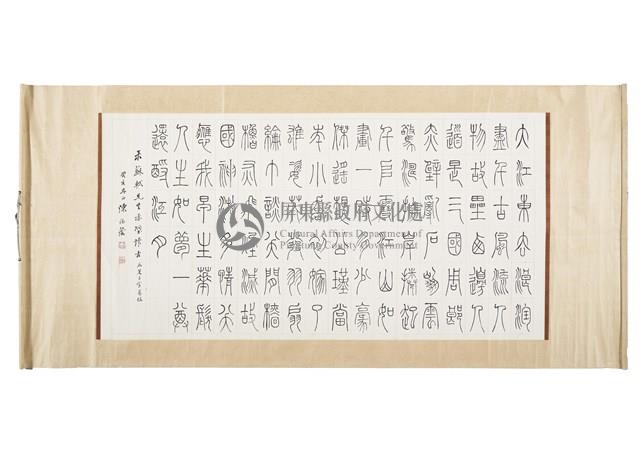 大江東去浪淘
盡千古風流人
物故壘西邊人
道是三國周郎
赤壁亂石崩雲
驚濤裂岸捲起
千堆雪江山如
畫一時多少豪
傑遙想公瑾當
年小喬初嫁了
雄姿英發羽扇
綸巾談笑間檣
櫓灰飛煙滅故
國神遊多情笑
應我早生華髮
人生如夢一尊
還酹江月
蘇軾
屏東縣政府文化處
Cultural Affairs Department of
Pingtung County Government